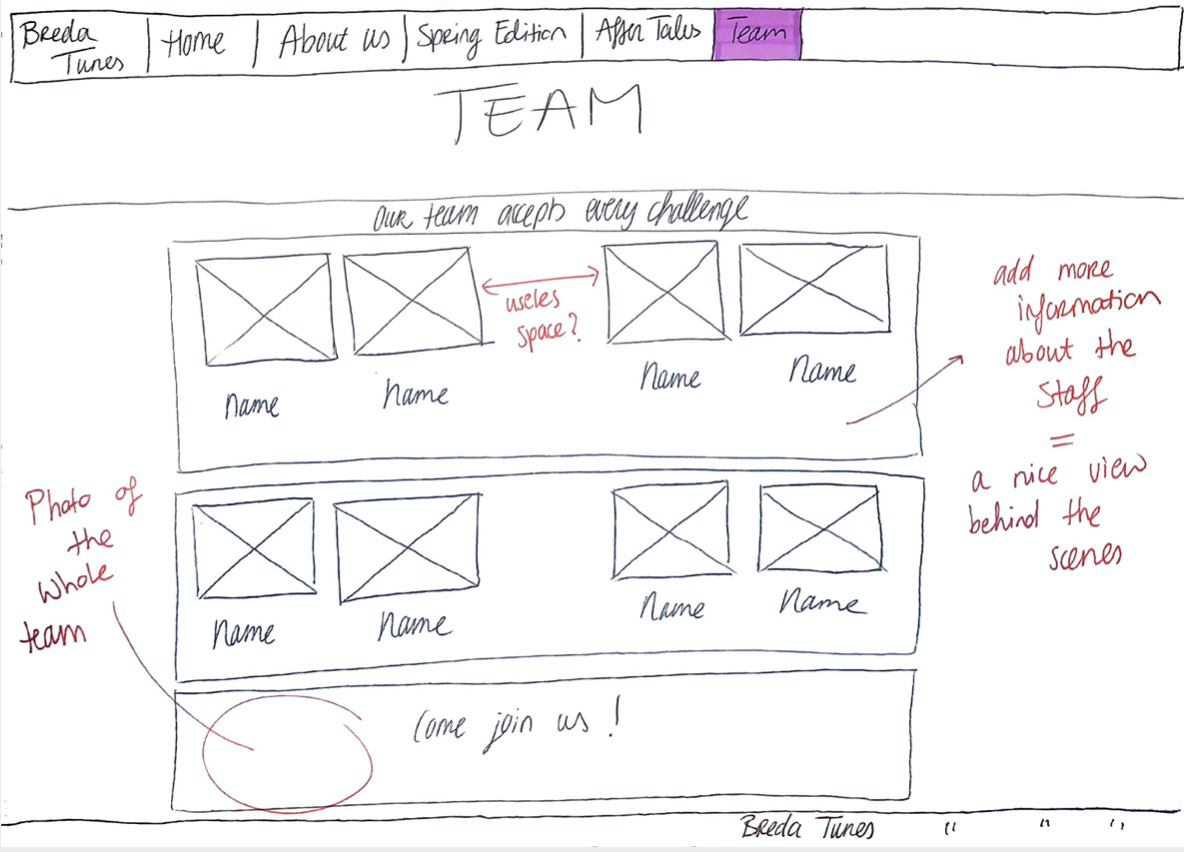 Breda
Tunes
Home
About us
Spring Edition
After Tales
Team
TEAM
our team accepts every challenge
useles
space?
name
name
Name
Name
add more
information
about the
Staff
=
a nice view
behind the
scenes
Photo of
the
whole
team
Name
Name
Name
Name
Come join us !
Breda Tunes " " "